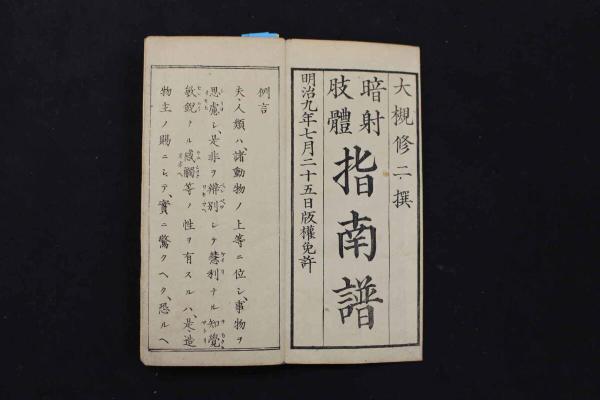 大槻修二撰
暗射
肢體
指南譜
明治九年七月二十五日版權免許
例言
夫人類ハ、諸動物ノ上等ニ位シ、事物ヲ
思慮シ、是非ヲ辨別シテ、慧利ナル知覺
敏鋭ナル感觸等ノ性ヲ有スルハ、是造
物主ノ賜ニシテ、實ニ驚クヘク、恐ルヘ